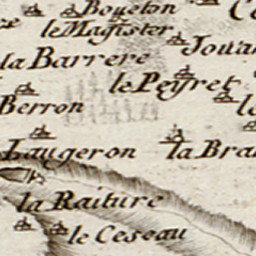 Boueton
le Magister
la Barrere
le Peyret
Berron
Laugeron
la Raiture
le Ceseau